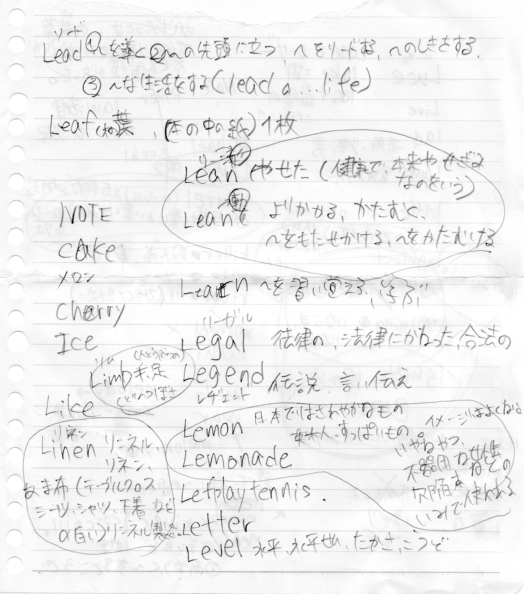 リード
Lead ①〜を導く②〜の先頭に立つ、〜をリードする、〜のしきをする、
③〜な生活をする(lead a...life)
Leaf 葉、(本の中の紙)1枚
リーン
Lean やせた(健康で、本来やせぎみなのをいう)
Lean 動 よりかかる、かたむく、
〜をもたせかける、〜をかたむける
NOTE
cake
メロン
cherry
Ice
Like
Learn 〜を習い覚える、学ぶ
リーガル
Legal 法律の、法律にかなった、合法の
リム
Limb 手足
Legend 伝説、言い伝え
レヂェンド
Lemon 日本ではさわやかなもの
美人、すっぱいもの
イメージはよくない
いやなやつ、
不器用な女性
欠陥品などの
いみで使われる
Lemonade
リネン
Linen リンネル、
リネン、
あま布(テーブルクロス
シーツ、シャツ、下着など
の白いリンネル製品
Let play tennis.
Letter
Level 水平、水平せん、たかさ、こうど